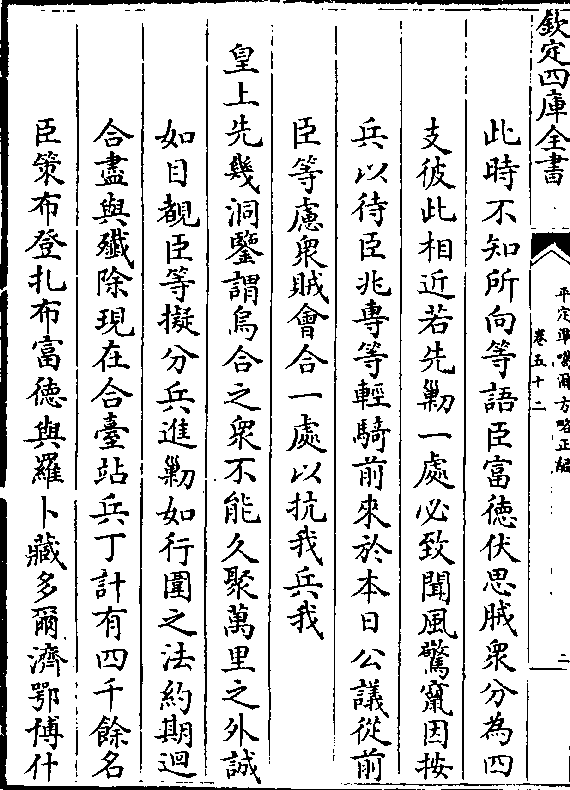 欽定四庫全書
平定準噶爾方略正編
卷五十二
二
此時不知所向等語臣富德伏思賊衆分為四
支彼此相近若先勦一處必致聞風驚竄因按
兵以待臣兆惠等輕騎前來於本日公議從前
臣等慮衆賊會合一處以抗我兵我
皇上先幾洞鑒謂烏合之衆不能久聚萬里之外誠
如目覩臣等擬分兵進勦如行圍之法約期迴
合盡與殲除現在合臺站兵丁計有四千餘名
臣策布登扎布富德與羅卜藏多爾濟鄂博什